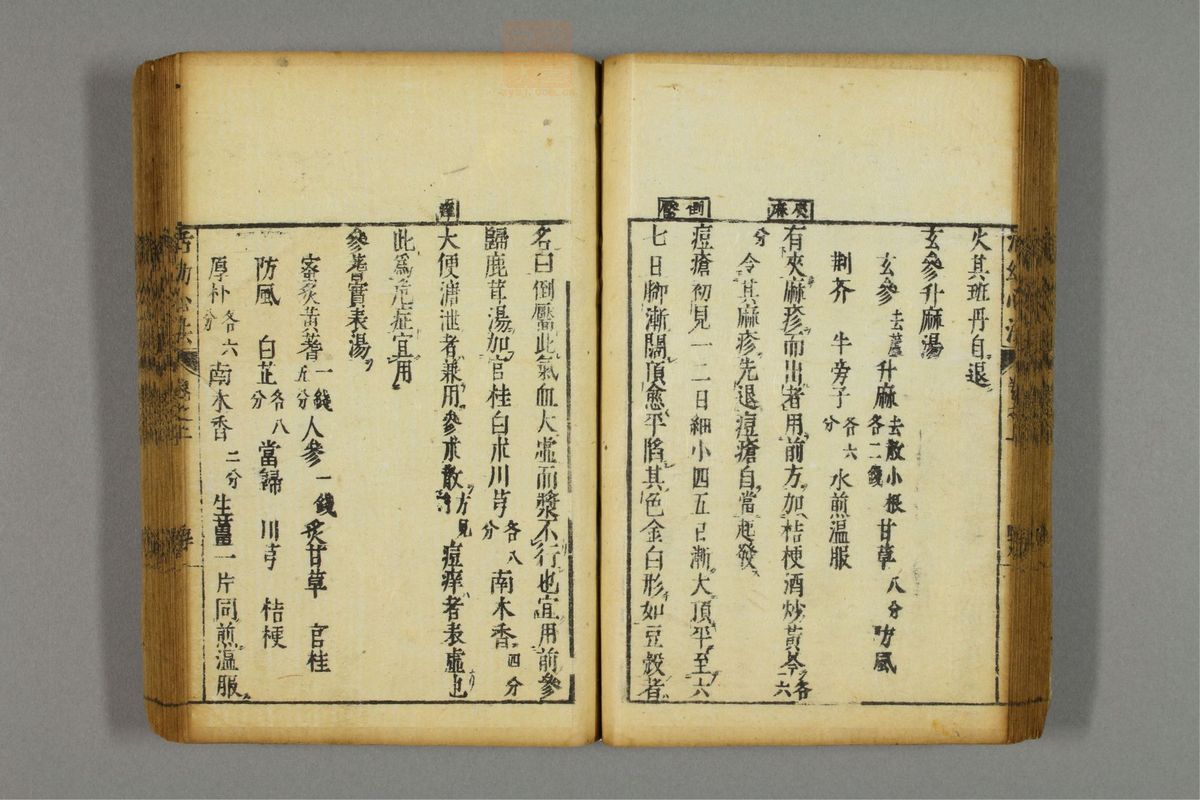 火其班丹自退
玄參升麻湯
玄參去蘆升麻去散小根各二錢甘草八分防風
荆芥 牛旁子各六分水煎温服
夾麻
有夾麻疹而出者用前方加桔梗酒炒黃芩各六
分令其麻疹先退痘瘡自當起發
倒靨
痘瘡初見一二日細小四五日漸大頂平至六
七日脚漸闊頂愈平陷其色金白形如豆殼者
名曰倒靨此氣血大虛而漿不行也宜用前參
歸鹿茸湯加官桂白朮川芎各八分南木香四分
痒
大便溏泄者兼用參朮散方見 痘痒者表虛也
此爲 症宜用
參耆實表湯
蜜炙黃耆一錢五分人參一錢炙甘草 官桂
防風 白芷各八分當歸 川芎 桔梗
厚朴各六分南木香二分生薑一片同煎溫服